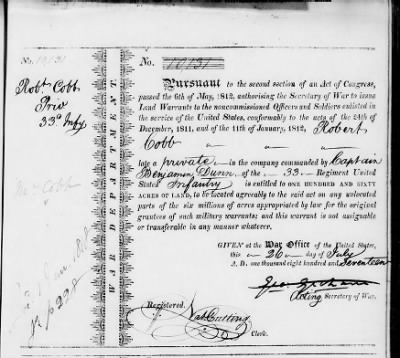 No. 10131
Robt Cobb
Priv
33d Infy
WAR DEPARTMENT
No. 10131
Pursuant to the second section of an Act of Congress,
passed the 6th of May, 1812, authorising the Secretary of War to issue
Land Warrants to the noncommissioned Officers and Soldiers enlisted
in the service of the United States, conformably to the acts of the 24th of
December, 1811, and of the 11th of January, 1812, Robert
Cobb
late a private in the company commanded by Captain
Benjamin Dunn of the 33 Regiment United
States Infantry is entitled to ONE HUNDRED AND SIXTY
ACRES OF LAND, to be located agreeably to the said act on any unlocated
parts of the six millions of acres appropriated by law for the original
grantees of such military warrants; and this warrant is not assignable
or transferable in any manner whatever.
GIVEN at the War Office of the United States,
this 26 day of July
A. D. one thousand eight hundred and Seventeen
Geo Graham
Acting Secretary of War.
Registered.
Nat Cutting
Clerk.